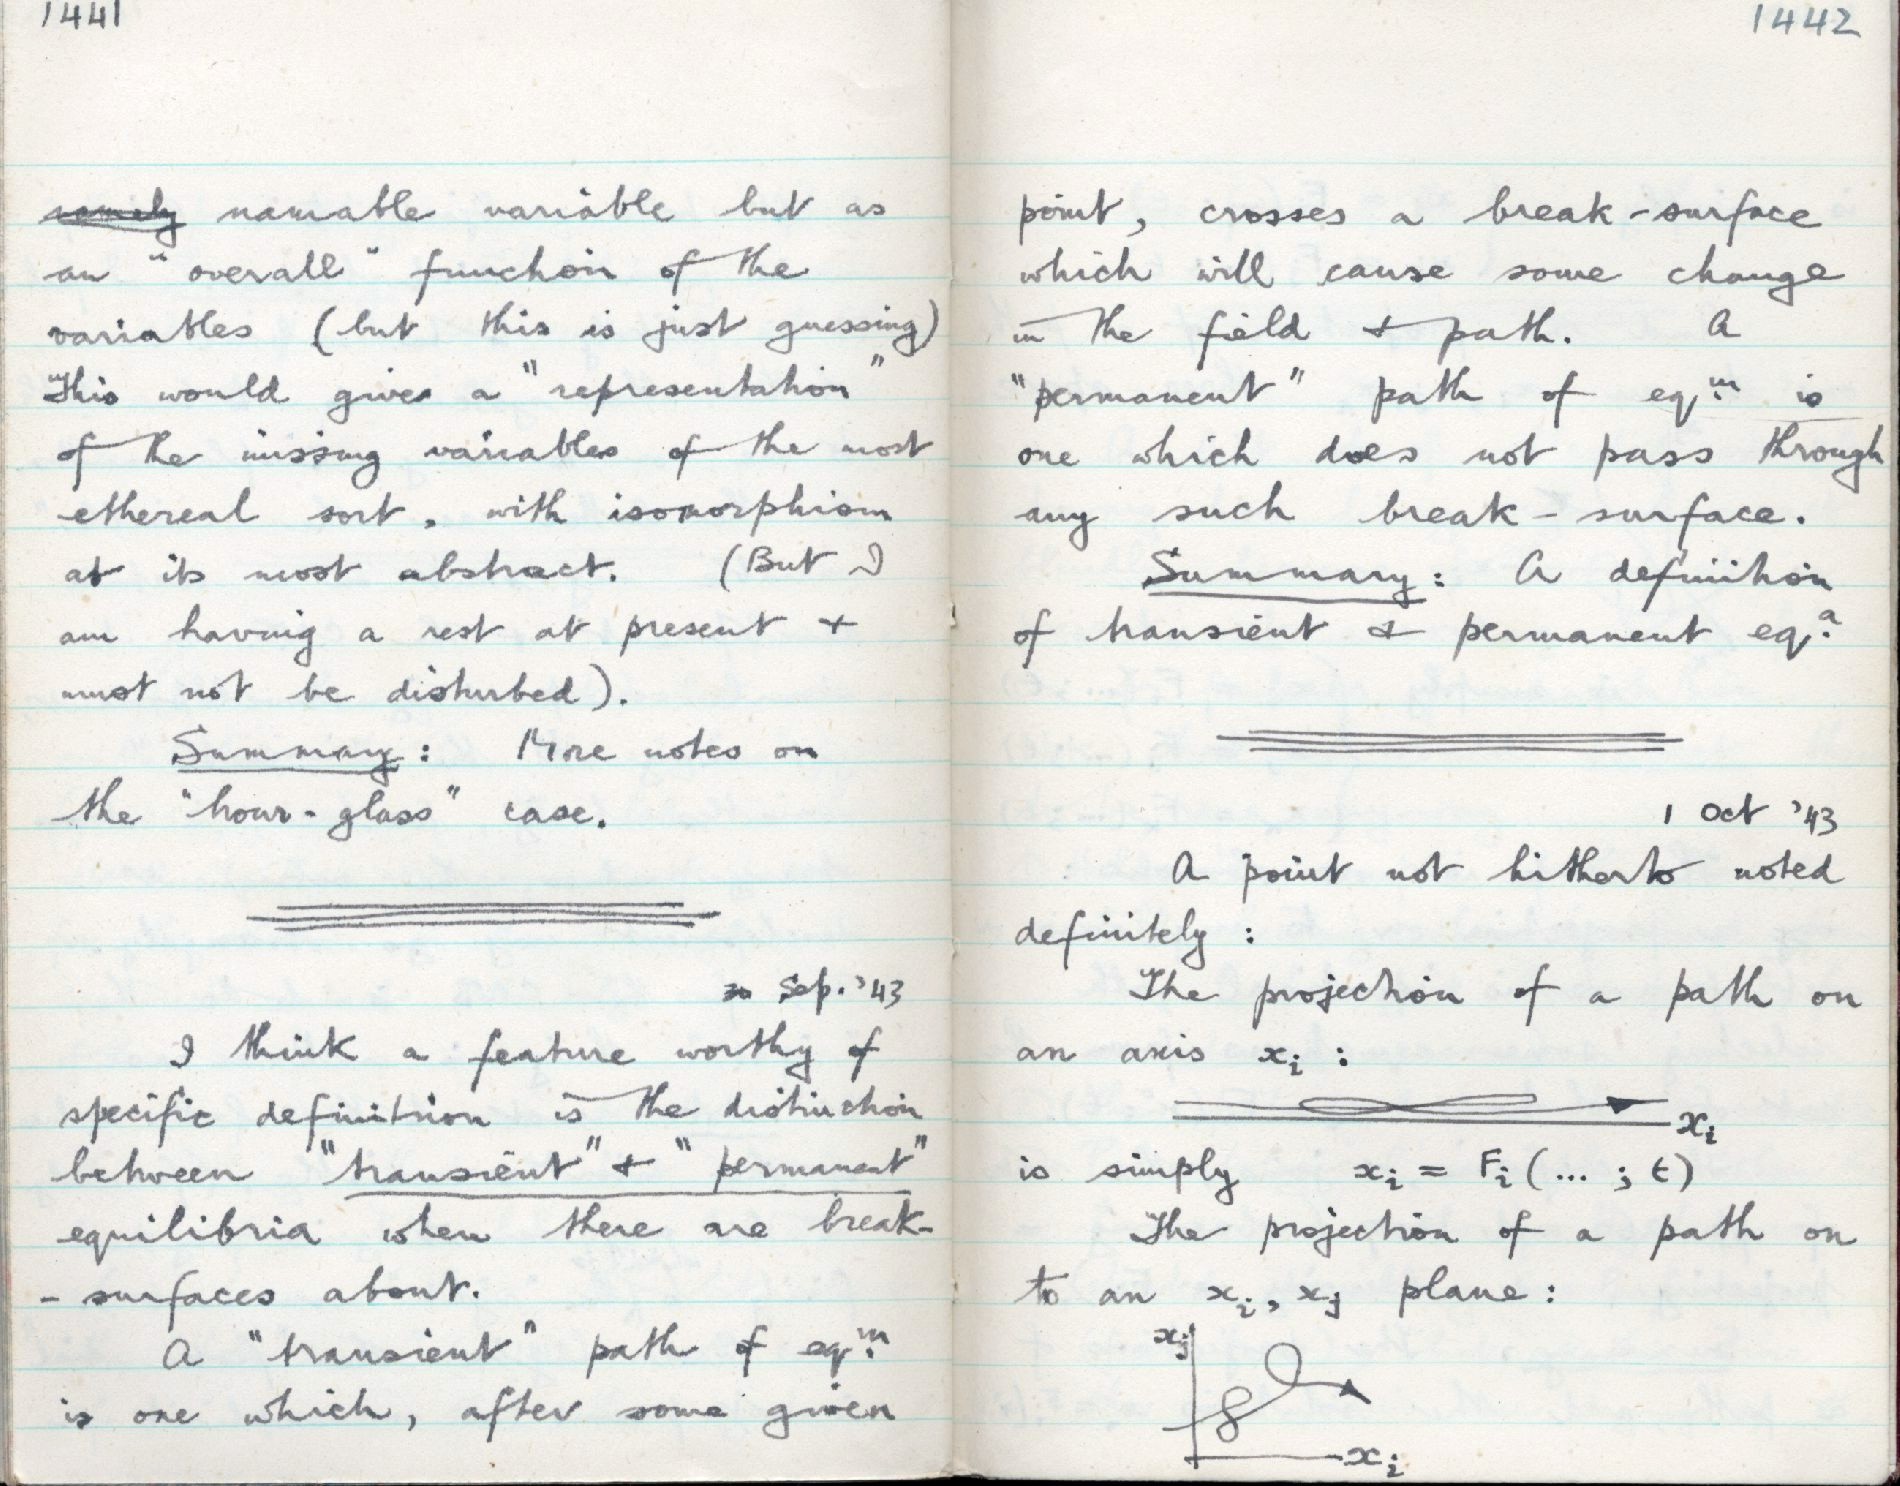 1441
namely namable variable but as
an "overall" function of the
variables (but this is just guessing)
This would give a "representation"
of the missing variables of the most
ethereal sort, with isomorphism
at its most abstract. (But I
am having a rest at present &
must not be disturbed).
Summary: More notes on
the "hour-glass" case.
30 Sep. '43
I think a feature worthy of
specific definition is the distinction
between "transient" & "permanent"
equilibria when there are break-
-surfaces about.
A "transient" path of eqm.
is one which, after some given
1442
point, crosses a break-surface
which will cause some change
in the field & path. A
"permanent" path of eqm. is
one which does not pass through
any such break-surface.
Summary: A definition
of transient & permanent eqa.
1 Oct '43
A point not hitherto noted
definitely:
The projection of a path on
an axis xi:
xi
is simply xi = Fi(...; t)
The projection of a path on
to an xi, xj plane:
xj
xi